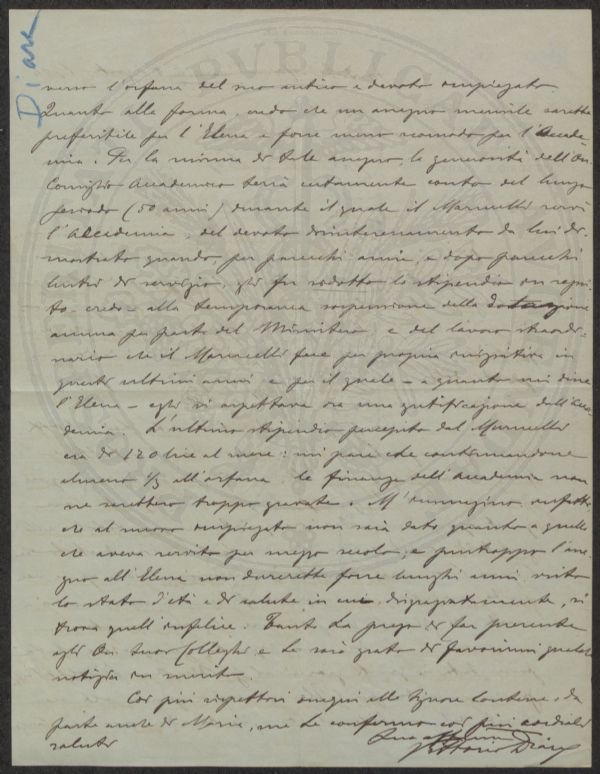 Diaz
verso l'orfana del suo antico e devoto impiegato.
Quanto alla forma, credo che un assegno mensile sarebbe
preferibile per l'Elena e forse meno scomodo per l'Accade-
mia. Per la misura di tale assegno, la generosità dell'On.
Consiglio Accademico terrà certamente conto del lungo
periodo (50 anni) durante il quale il Marucelli servì
l'Accademia, del devoto disinteressamento da lui di-
mostrato quando, per parecchi anni, e dopo parecchi
lustri di servizio, gli fu ridotto lo stipendio in segui-
to - credo - alla temporanea sospensione della dotazione
annua per parte del Ministero, e del lavoro straordi-
nario che il Marucelli fece per propria iniziativa in
questi ultimi anni e per il quale - a quanto mi dice
l'Elena - egli si aspettava ora una gratificazione dall'Acca-
demia. L'ultimo stipendio percepito dal Marucelli
era di 120 lire al mese: mi pare che continuandone
almeno 1/3 all'orfana le finanze dell'Accademia non
ne sarebbero troppo gravate. M'immagino infatti
che al nuovo impiegato non sarà dato quanto a quello
che aveva servito per mezzo secolo, e purtroppo l'asse-
gno all'Elena non durerebbe forse lunghi anni visto
lo stato d'età e di salute in cui, disgraziatamente, si
trova quell'infelice. Tanto La prego di far presente
agli On. Suoi Colleghi e Le sarò grato di favorirmi qualche
notizia in merito.
Coi più rispettosi ossequi alle Signore Contesse, da
parte anche di Maria, me Le confermo coi più cordiali
saluti
Suo
Vittorio Diaz
RPVBLICA